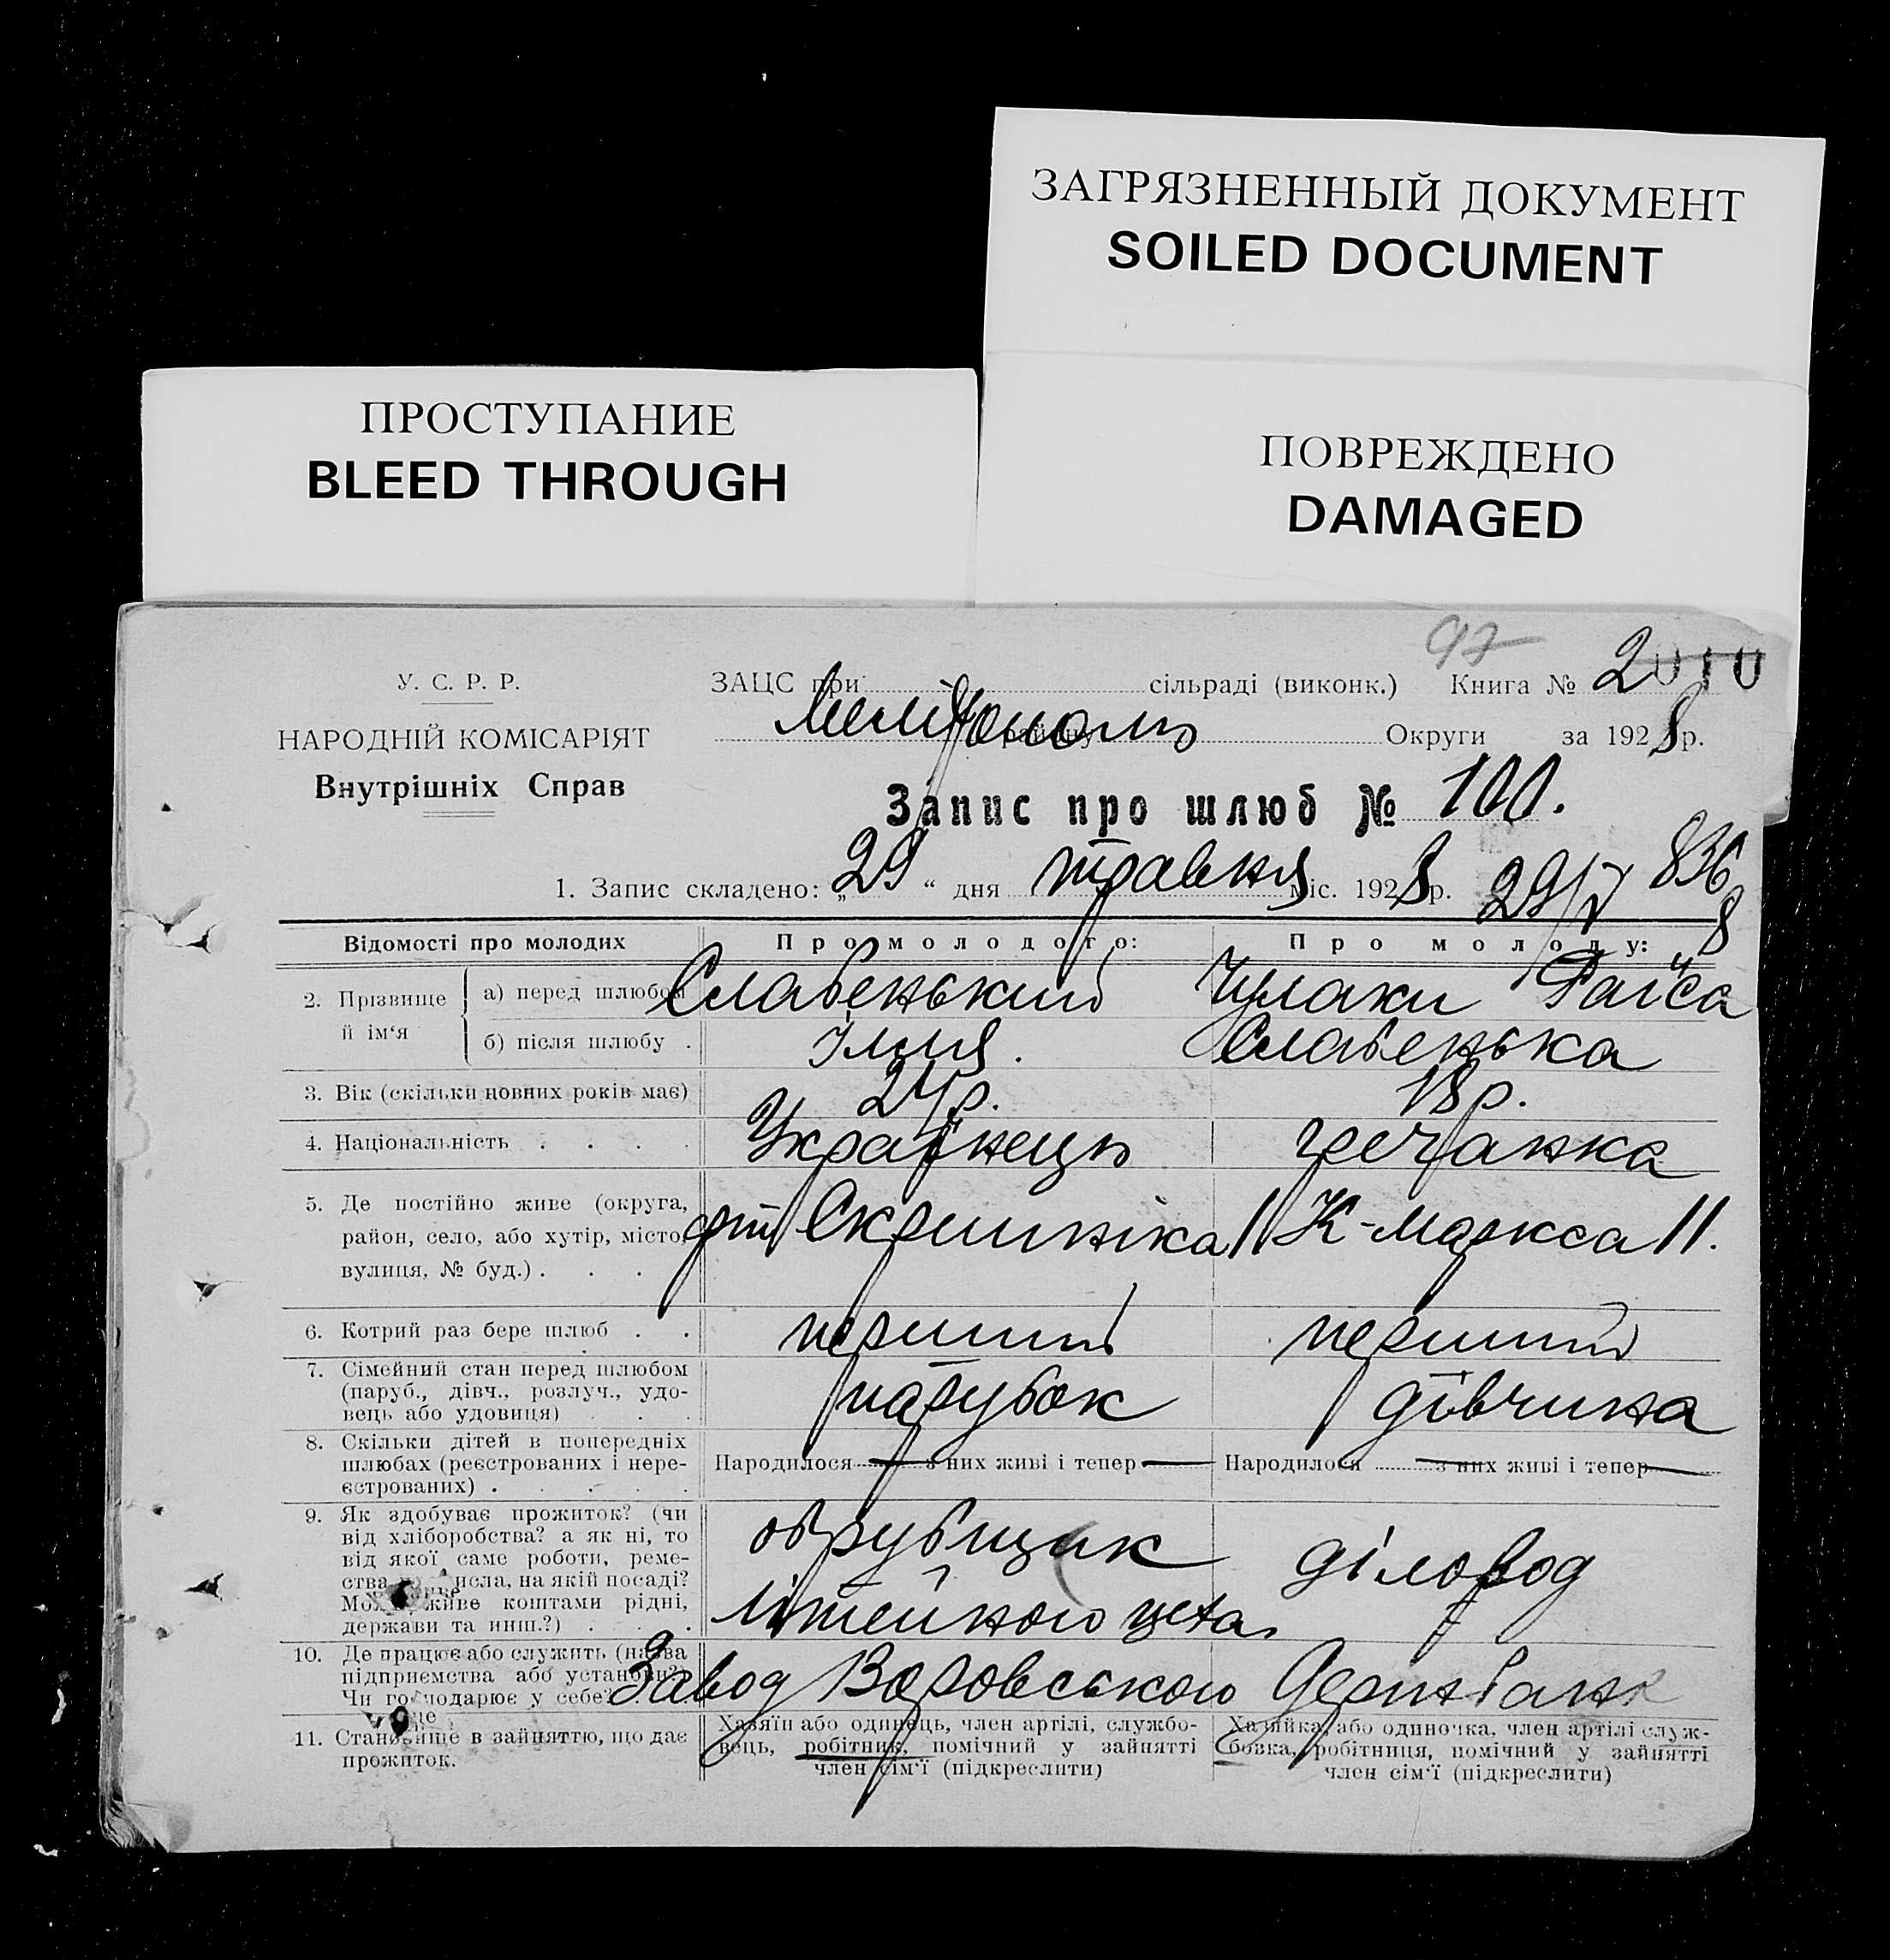 ЗАГРЯЗНЕННЫЙ ДОКУМЕНТ
SOILED DOCUMENT
ПРОСТУПАНИЕ
BLEED THROUGH
ПОВРЕЖДЕНО
DAMAGED
97
У. С. Р. Р.
НАРОДНІЙ КОМІСАРІЯТ
Внутрішніх Справ
ЗАЦС при сільраді (виконк.) Книга № 2
Мелітополь району Округи за 1928 р.
Запис про шлюб № 100.
1. Запис складено: „29“ дня травня міс. 1928 р. 29/V 8 836
Відомості про молодих Про молодого: Про молоду:
2. Прізвище й ім‘я а) перед шлюбом Слабенький Чулаки Раїса
б) після шлюбу . Ілия. Слабенька
3. Вік (скільки повних років має) 24 р. 18 р.
4. Національність . . . . Українець гречанка
5. Де постійно живе (округа,
район, село, або хутір, місто,
вулиця, № буд.) . . . Скрипніка 11 К-Маркса 11.
6. Котрий раз бере шлюб . . перший перший
7. Сімейний стан перед шлюбом
(паруб., дівч., розлуч., удо-
вець або удовиця) . . . парубок дівчина
8. Скільки дітей в попередніх
шлюбах (реєстрованих і нере-
єстрованих) . . . . . Народилося — з них живі і тепер — Народилося — з них живі і тепер —
9. Як здобуває прожиток? (чи
від хліборобства? а як ні, то
від якої саме роботи, реме-
ства на якій посаді?
Може живе коштами рідні,
держави та инш.?) . . . обрубщик літейного цеха діловод
10. Де працює або служить (назва
підприємства або установи?)
Чи господарює у себе? Завод Воровського Держбанк
11. Становище в зайняттю, що дає
прожиток.
Хазяїн або одинець, член артілі, службо-
вець, робітник, помічний у зайнятті
член сім‘ї (підкреслити)
Хазяйка, або одиночка, член артілі служ-
бовка, робітниця, помічний у зайнятті
член сім‘ї (підкреслити)